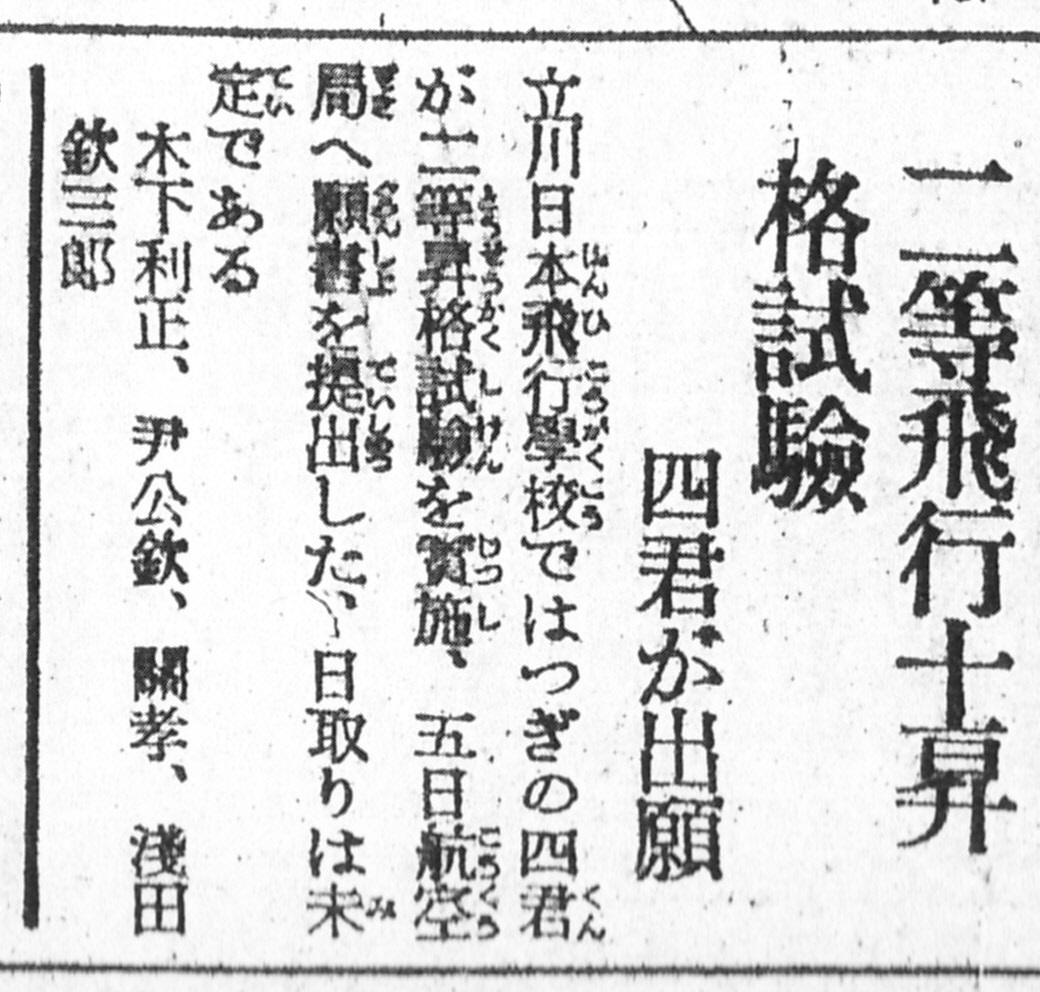 二等飛行士昇
格試驗
四君が出願
立川日本飛行學校ではつぎの四君
が二等昇格試驗を實施、五日航空
局へ願書を提出した、日取りは未
定である
木下利正、尹公欽、關孝、淺田
欽三郎